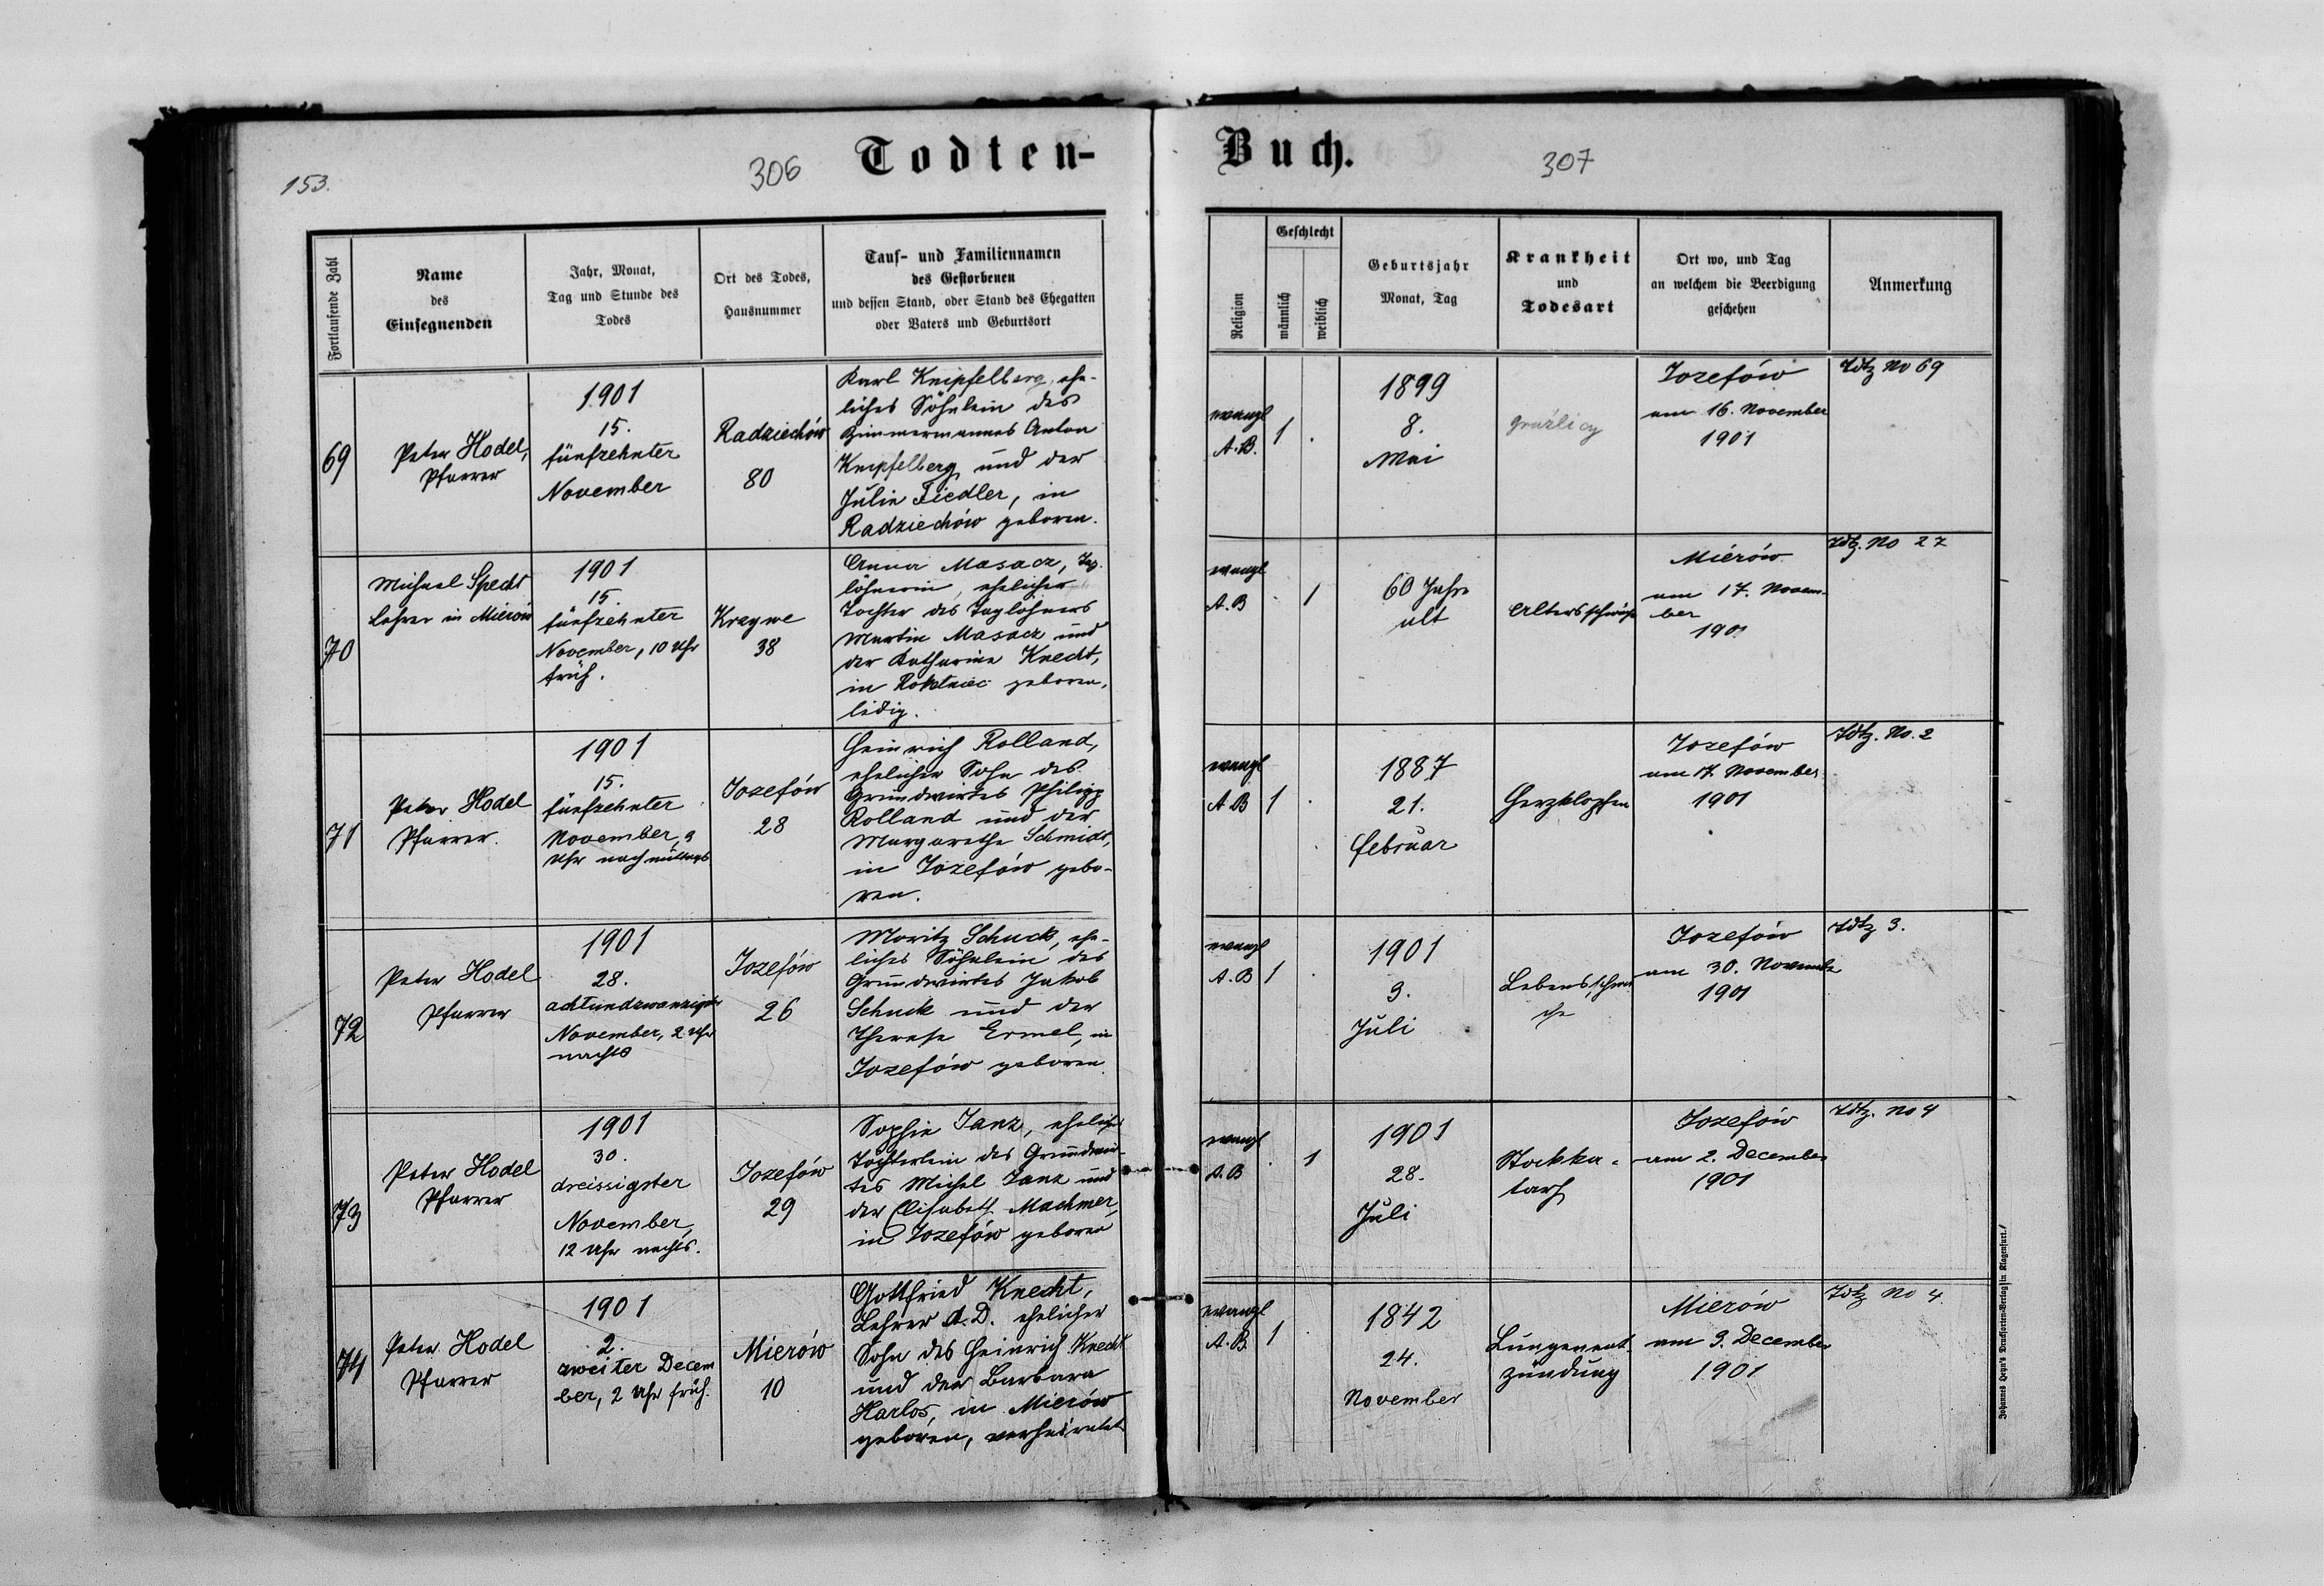 153.
306
Todten-
Buch.
307
Fortlaufende Zahl
Name
des
Einsegnenden
Jahr, Monat,
Tag und Stunde des
Todes
Ort des Todes,
Hausnummer
Tauf- und Familiennamen
des Gestorbenen
und dessen Stand, oder Stand des Ehegatten
oder Vaters und Geburtsort
Religion
Geschlecht
männlich
weiblich
Geburtsjahr
Monat, Tag
Krankheit
und
Todesart
Ort wo, und Tag
an welchem die Beerdigung
geschehen
Anmerkung
69
Peter Hodel,
Pfarrer
1901
15.
fünfzehnter
November
Radziechów
80
Karl Knipfelberg, ehe-
liches Söhnlein des
Zimmermannes Anton
Knipfelberg und der
Julie Fiedler, in
Radziechów geboren.
evangl
A.B.
1
.
1899
8.
Mai
gruźlicy
Jozefów
am 16. November
1901
No 69
70
Michael Specht
Lehrer in Mierów
1901
15.
fünfzehnter
November, 10 Uhr
früh.
Krzywe
38
Anna Masacz, Tag-
löhnerin, ehelicher
Tochter des Taglöhners
Martin Masacz und
der Katharina Knecht,
in geboren,
ledig.
evangl
A.B
.
1
60 Jahre
alt
Altersschwäche
Mierów
am 17. Novem-
ber
1901
No 27
71
Peter Hodel
Pfarrer.
1901
15.
fünfzehnter
November, 9
Uhr nachmittags
Jozefów
28
Heinrich Rolland,
ehelicher Sohn des
Grundwirtes Philipp
Rolland und der
Margarethe Schmidt,
in Jozefów gebo-
ren.
evangl
A.B
1
.
1887
21.
Februar
Herzklopfen
Jozefów
am 17. November
1901
No. 2
72
Peter Hodel
Pfarrer
1901
28.
achtundzwanzigster
November, 2 Uhr
nachts
Jozefów
26
Moritz Schuck, ehe-
liches Söhnlein des
Grundwirtes Jakob
Schuck und der
Therese Ermel, in
Jozefów geboren.
evangl
A.B
1
.
1901
9.
Juli
Lebensschwä-
che
Jozefów
am 30. November
1901
3.
73
Peter Hodel
Pfarrer
1901
30.
dreissigster
November,
12 Uhr nachts.
Jozefów
29
Sophie Janz, eheliches
Töchterlein des Grundwir-
tes Michel Janz und
der Elisabeth Machmer,
in Jozefów geboren
evangl
A.B
.
1
1901
28.
Juli
Stockka-
tarh
Jozefów
am 2. December
1901
No 4
74
Peter Hodel
Pfarrer
1901
2.
zweiter Decem
ber, 2 Uhr früh.
Mierów
10
Gottfried Knecht,
Lehrer A.D. ehelicher
Sohn des Heinrich Knecht
und der Barbara
Harlos, in Mierów
geboren, verheiratet
evangl
A.B.
1
.
1842
24.
November
Lungenent-
zündung
Mierów
am 3. December
1901
No 4.
Johannes Heyn's Drucksorten-Verlag in Klagenfurt.